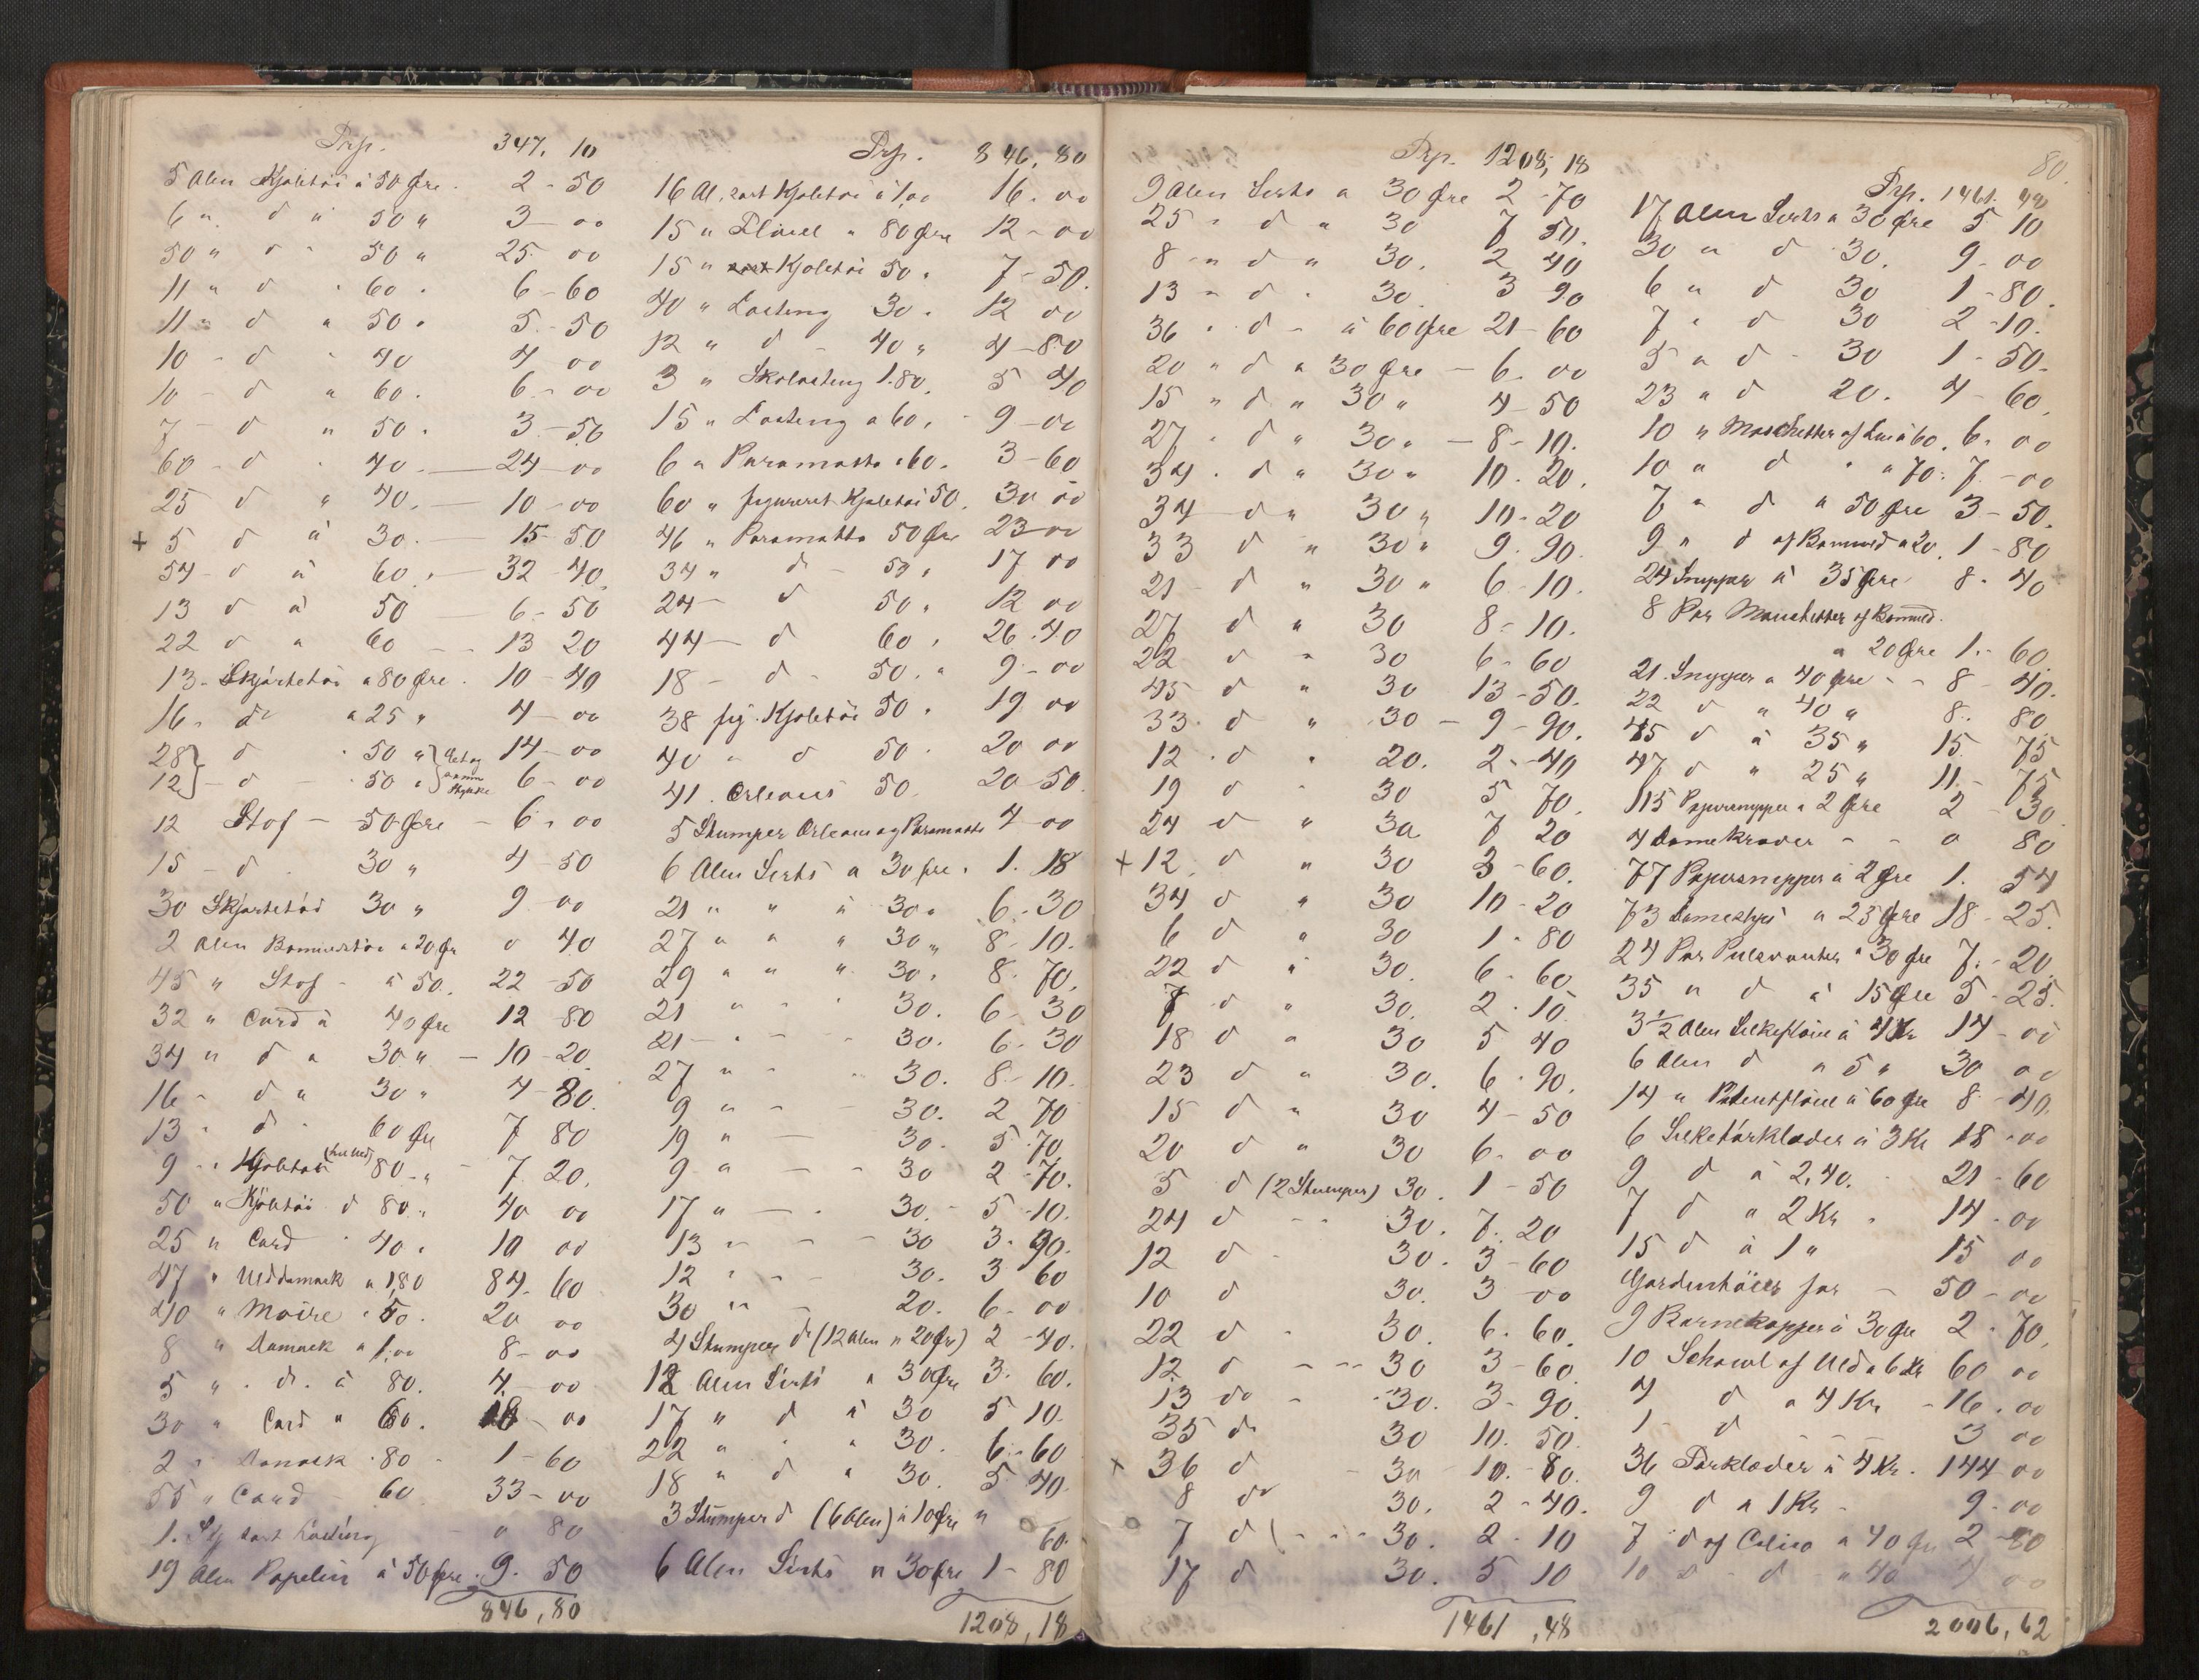 Trp. 347,10
5 Alen Kjoletøi á 50 Øre. 2-50
6 " d " 50 " 3-00
50 " d - 50 " 25-00
11 " d . 60 . 6-60
11 - d " 50 . 5-50
10 - d - 40 4-00
10 - d " 60 . 6-00
7 - d " 50 . 3-50
60 - d . 40 . 24-00
25 d " 40 . 10-00
+ 5 d á 30 . 15-50
54 - d á 60 . 32-40
13 d á 50 6-50
22 d " 60 13 20
13 - Skjørtetøi a 80 Øre. 10-40
16 - do a 25 " 4-00
28 } d . 50 " } 14-00
12 } - d - . 50 . } 6-00
12 Stof - 50 Øre - 6-00
15 - d . 30 " 4-50
30 Skjørtetøi 30 " 9-00
2 Alen Bomuldstøi a 20 Øre 0 40
45 " Stof - á 50 . 22-50
32 " Cord á 40 Øre 12 80
34 " d a 30 " - 10-20
16 - d " 30 " 4-80
13 " d - 60 Øre 7 80
9 - Kjoletøi 80 - " 7 20
50 " Kjoletøi d 80 " 40 00
25 " Cord . 40 . 10 00
47 " Ulddamask a 1,80 84-60
40 " Moire . 50 . 20 00
8 " Damask a 1,00 8-00
5 " - d. á 80 . 4-00
30 " Cord " 60 . 18-00
2 " Damask . 80 - 1-60
55 " Cord - 60 33-00
1. Stk sort Lasting - 0 80
19 Alen Popelin á 50 Øre. 9. 50
846,80
Trp. 846,80
16 Al. sort Kjoletøi á 1,00 16-00
15 " Fløiel " 80 Øre 12-00
15 " Kjoletøi 50 . 7-50
40 " Lasting 30 . 12 00
12 " d - 40 " 4-80
3 " Skolasting 1.80 . 5 40
15 " Lasting a 60 . - 9-00
6 " Paramatta . 60 . 3-60
60 " figureret Kjoletøi 50 . 30 00
46 " Paramatta 50 Øre 23-00
34 " d - 50 . 17 00
24 - d 50 . 12 00
44 - d 60 . 26.40
18 - d - 50 . " 9-00
38 fig. Kjoletøi 50 . 19 00
40 - d 50 . 20 00
41 . Orleans 50 20-50
5 Stumper Orleans og Paramatta 4-00
6 Alen Sirts a 30 Øre . 1. 18
21 " " á 30 . 6-30
27 " " " 30 " 8-10.
29 " " " 30 . 8.70.
21 " - ' 30 . 6-30
21 - - - 30 . 6-30
27 " - - 30. 8-10.
9 " - - 30. 2 70
19 " - 30. 5.70
9 " - - 30 2-70.
17 " - . 30. - 5-10.
13 - - - 30 3-90.
12 - - - 30. 3 60
30 " - 20. 6-00
4 Stumper do (12 Alen a 20 Øre) 2-40.
12 Alen Sirts a 30 Øre 3. 60.
17 " d á 30 5 10.
22 " . " 30 . 6-60
18 " d " 30 . 5 40
3 Stumper d (6 Alen) á 10 Øre "
60.
6 Alen Sirts a 30 Øre 1-80
1208,18
Trp. 1208,18
9 Alen Sirts a 30 Øre 2-70
25 - d " 30 7 50.
8 - " d " 30. 2 40
13 - d . 30 3 90
36 . d - á 60 Øre 21-60
20 " d a 30 Øre - 6. 00
15 " d " 30 " 4-50
27 - d " 30 . - 8-10.
34 . d " 30 " 10.20.
34 - d " 30 " 10-20
33 d " 30 " 9.90.
21 - d " 30 " 6-10.
27 d " 30 8-10.
22 d - 30 6-60
45 d " 30 13-50.
33. d " 30 - 9-90.
12 . d . 20. 2-40
19 d - 30 5 70.
24 d " 30 7 20
+ 12. d " 30 3-60.
34 d " 30 10-20
6 d " 30 1-80
22 d " 30. 6-60
7 d " 30. 2.10
18 d " 30 5 40
23 d " 30. 6.90.
15 d " 30 4-50
20 d " 30 6-00
5 d (2 Stumper) 30 . 1-50
24 d - - 30. 7. 20
12 d - 30. 3-60
10 d 30. 3-00
22 d - 30. 6.60.
12 d - - - 30 3-60.
13 do - - 30. 3-90.
35 do 30 10.50.
x 36 d - 30 10.-80.
8 do 30. 2-40.
7 d ( - - - 30. 2.10
17 d 30. 5 10
1461,48
80.
Trp. 1461.48
17 Alen Sirts a 30 Øre 5 10
30 " d 30. 9-00
6 " d 30 1-80.
7 " d 30 2-10.
5 " d - 30 1-50.
23 " d 20. 4-60.
10 " Manchetter af Lin á 60. 6. 00
10 " d . " 70. 7. -00
7 " d a 50 Øre 3-50.
9 " d af Bomuld a 20. 1-80
24 Snipper á 35 Øre 8. 40
8 Par Manchetter af Bomuld.
a 20 Øre 1.-60.
21. Snipper a 40 Øre - - 8-40.
22 d " 40 " 8. 80.
45 d á 35 " 15. 75
47 d " 25 " 11.-75
115 Papirsnipper a 2 Øre 2-30
4 Damekraver - - 0 80
77 Papirsnipper á 2 Øre 1. 54
73 Dameslips a 25 Øre 18-25.
24 Par Pulsvanter a 30 Øre 7.-20
35 " d á 15 Øre 5-25.
3 1/2 Alen Silkefløiel á 4 Kr 14-00
6 Alen d " 5 " 30 00
14 " Patentfløiel á 60 Øre 8-40.
6 Silketørklæder á 3 Kr 18-00
9 d á 2,40. 21-60
7 d " 2 Kr . 14.00
15 d á 1 " 15 00
Gardenhöier for - 50-00
9 Barnekapper á 30 Øre 2.70.
10 Schawl af Uld a 6 Kr 60 00
4 d a 4 Kr - 16.00
1 - d - - - 3 00
36 Tørklæder á 4 Kr. 144 00
9 d a 1 Kr - 9-00
7 d af Calico a 40 Øre 2-80
10 d - d - " 40 4 00
2006,62